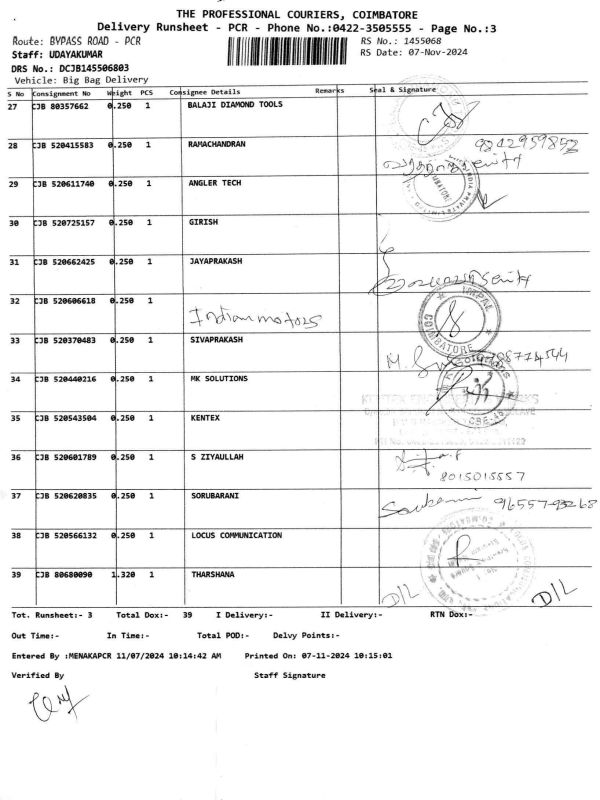 THE PROFESSIONAL COURIERS, COIMBATORE
Delivery Runsheet - PCR - Phone No.:0422-3505555 - Page No.:3
Route: BYPASS ROAD - PCR
RS No.: 1455068
Staff: UDAYAKUMAR
RS Date: 07-Nov-2024
DRS No.: DCJB145506803
Vehicle: Big Bag Delivery
S No Consignment No Weight PCS Consignee Details Remarks Seal & Signature
27 CJB 80357662 0.250 1 BALAJI DIAMOND TOOLS
28 CJB 520415583 0.250 1 RAMACHANDRAN
29 CJB 520611740 0.250 1 ANGLER TECH
COIMBATORE
30 CJB 520725157 0.250 1 GIRISH
31 CJB 520662425 0.250 1 JAYAPRAKASH
32 CJB 520606618 0.250 1 Indian motors
IMPAL
COIMBATORE
33 CJB 520370483 0.250 1 SIVAPRAKASH
34 CJB 520440216 0.250 1 MK SOLUTIONS
35 CJB 520543504 0.250 1 KENTEX
CBE-45
36 CJB 520601789 0.250 1 S ZIYAULLAH
8015015557
37 CJB 520620835 0.250 1 SORUBARANI
38 CJB 520566132 0.250 1 LOCUS COMMUNICATION
39 CJB 80680090 1.320 1 THARSHANA D/L D/L
Tot. Runsheet:- 3 Total Dox:- 39 I Delivery:- II Delivery:- RTN Dox:-
Out Time:- In Time:- Total POD:- Delvy Points:-
Entered By :MENAKAPCR 11/07/2024 10:14:42 AM Printed On: 07-11-2024 10:15:01
Verified By Staff Signature